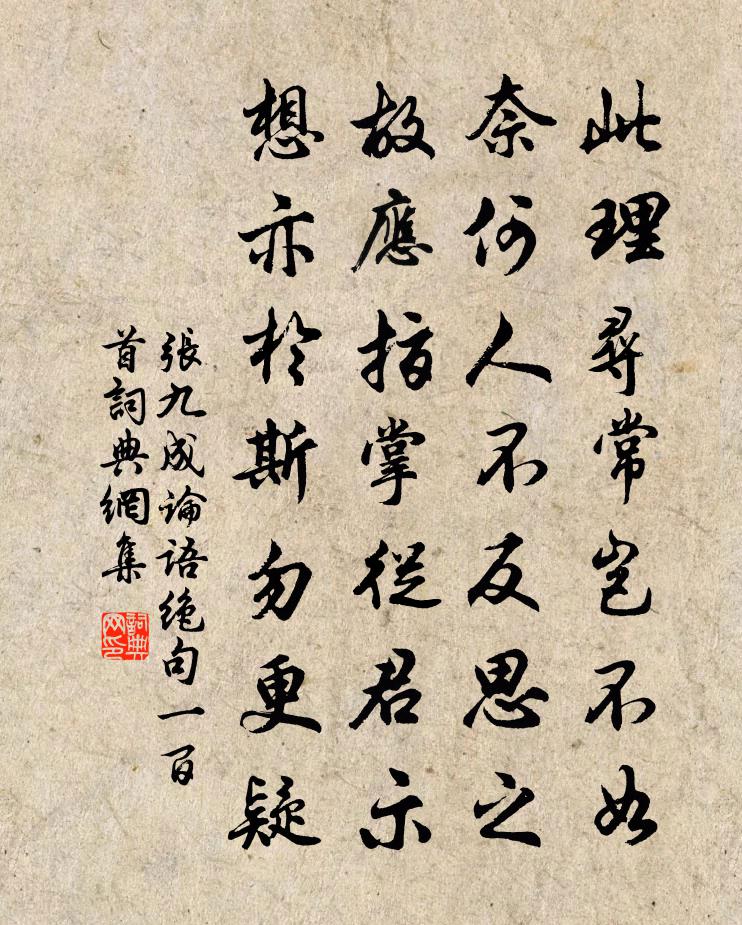 此理尋常豈不如
奈何人不反思之
故應指掌從君示
想亦於斯勿更疑
張九成論語绝句一百
首詞典網集
詞典
网印